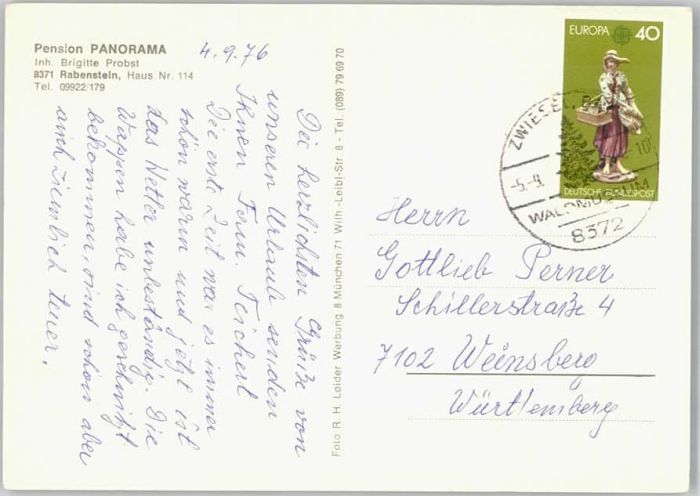 Pension PANORAMA
Inh. Brigitte Probst
8371 Rabenstein, Haus Nr. 114
Tel. 09922/179
4.9.76
Die herzlichsten Grüße von
unseren Urlaub senden
Ihnen Fam. Teichert
Die erste Zeit war es immer
schön warm und jetzt ist
das Wetter unbeständig. Die
Wappen habe ich geschnitzt
bekommen, sind schön aber
auch ziemlich teuer.
Foto R. H. Loider Werbung 8 München 71 Wilh.-Leibl-Str 8 - Tel. (089) 79 69 70
EUROPA 40
DEUTSCHE BUNDESPOST
ZWIESEL,
-5.-9.
WALDMU
8372
Herrn
Gottlieb Perner
Schillerstraße 4
7102 Weinsberg
Württemberg